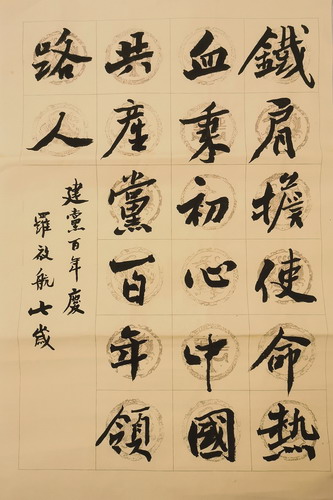 鐵肩擔使命熱
血秉初心中國
共產黨百年領
路人
建黨百年慶
羅啟航七歲